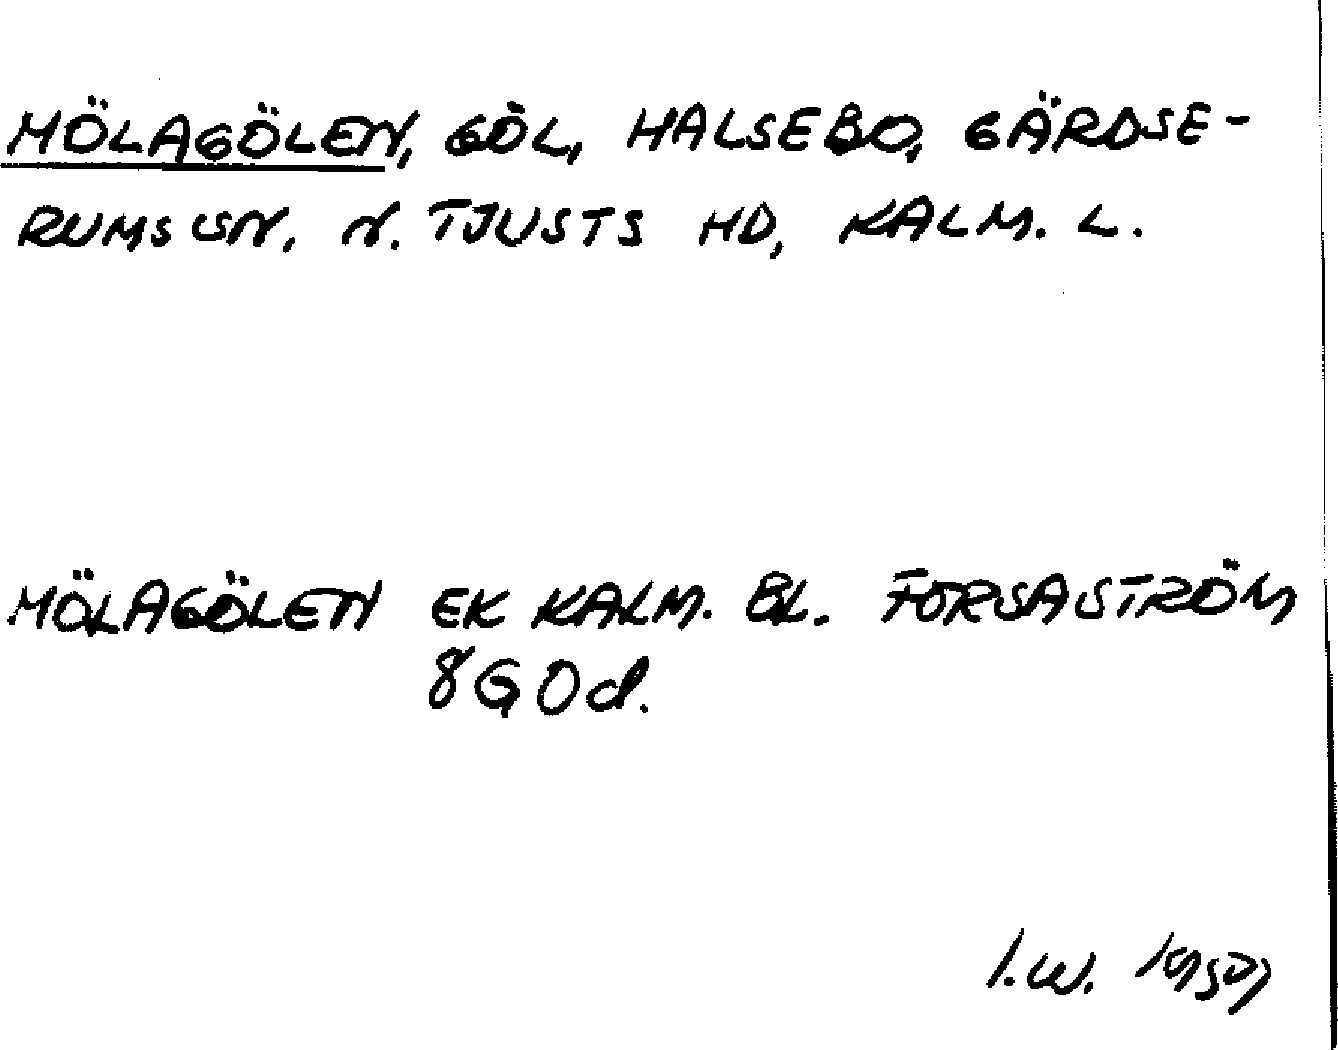 MÖLAGÖLEN, GÖL, HALSEBO, GÄRDSE-
RUMS SN. N. TJUSTS HD, KALM. L.
MÖLAGÖLEN EK KALM. BL. FORSASTRÖM
8G0d.
I.W. 1959